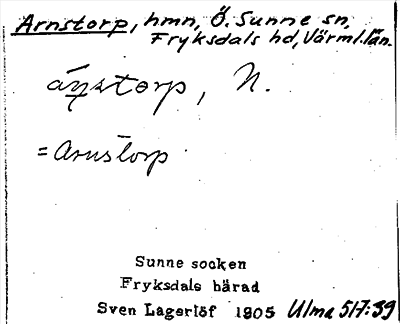 Arnstorp, hmn, Ö. Sunne sn,
Fryksdals hd, Värml. län.
ánstorp, N.
= Arnstorp
Sunne socken
Fryksdals härad
Sven Lagerlöf 1905 Ulma 517:39